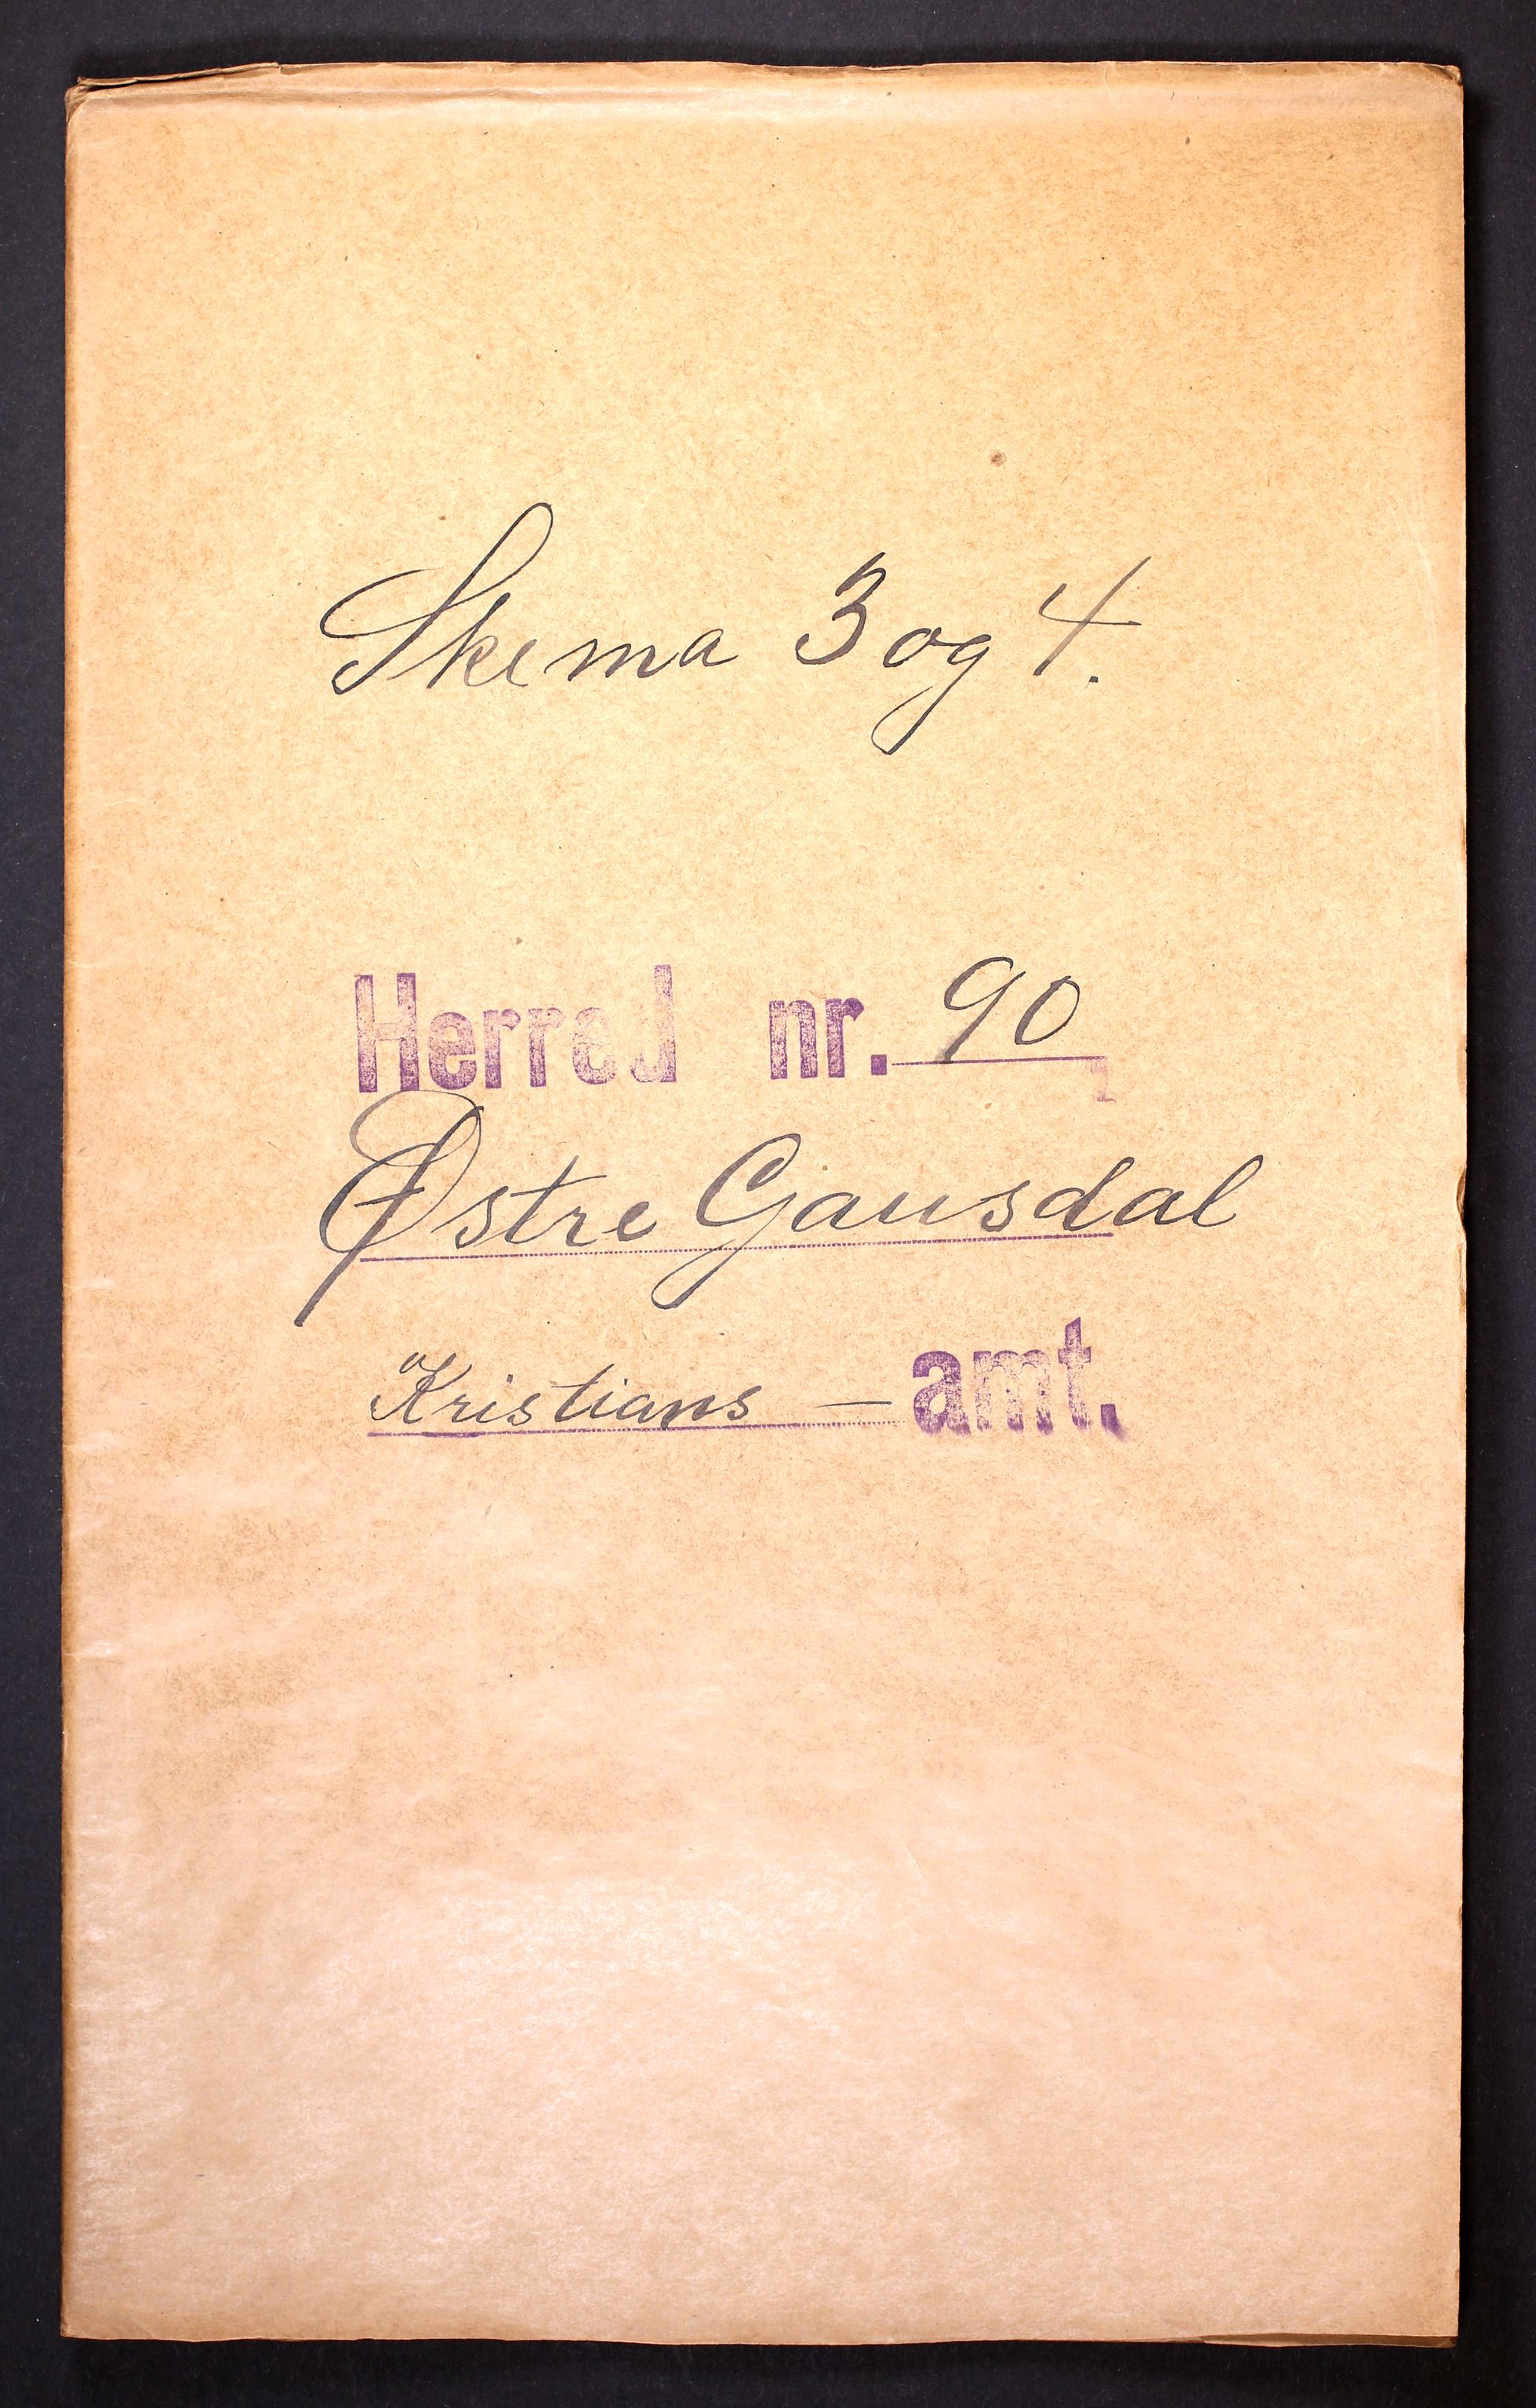 Skema 3 og 4.
Herred nr. 90
Østre Gausdal
Kristians - amt.